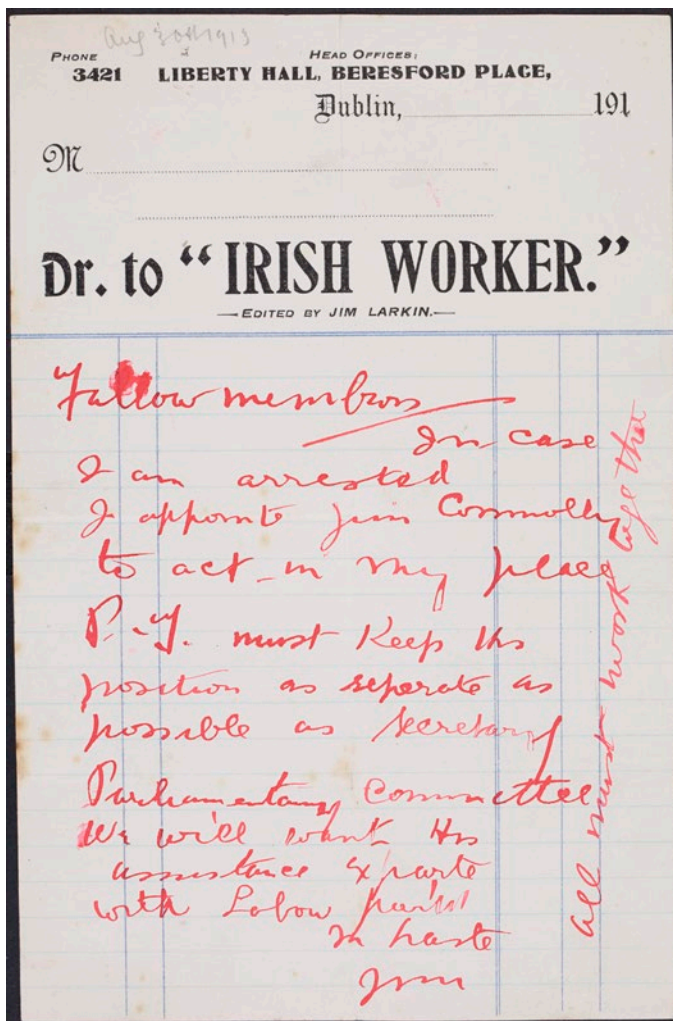 Aug 30th 1913
PHONE
3421
HEAD OFFICES:
LIBERTY HALL, BERESFORD PLACE,
Dublin, 191
M
Dr. to “IRISH WORKER.”
—EDITED BY JIM LARKIN.—
Fellow members
In case
I am arrested
I appoint Jim Connolly
to act in my place
P.T. must Keep his
position as seperate as
possible as Secretary
Parliamentary Committee
We will want His
assistance Exparte
with Labour
In haste
Jim
all must work together